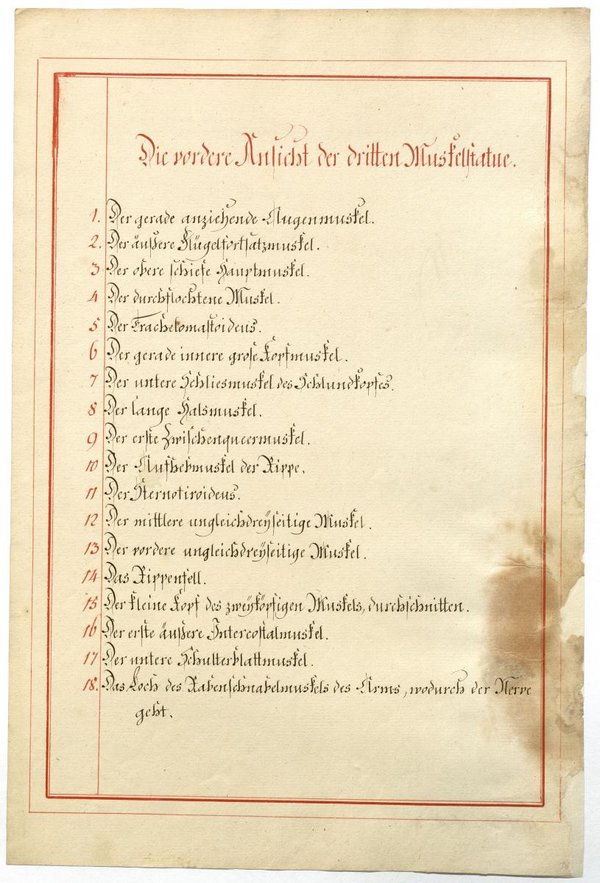 Die vordere Ansicht der dritten Muskelstatue.
1. Der gerade anziehende Augenmuskel.
2. Der äußere Flügelfortsatzmuskel.
3 Der obere schiefe Hauptmuskel.
4 Der durchflochtene Muskel.
5 Der Trachelomastoideus.
6 Der gerade innere grose Kopfmuskel.
7 Der untere Schliesmuskel des Schlundkopfes.
8 Der lange Halsmuskel.
9 Der erste Zwischenqueermuskel.
10 Der Aufhebmuskel der Rippe.
11 Der Sternotiroideus.
12 Der mittlere ungleichdreÿseitige Muskel.
13 Der vordere ungleichdreÿseitige Muskel.
14 Das Rippenfell.
15 Der kleine Kopf des zweÿköpfigen Muskels, durchschnitten.
16 Der erste äußere Intercostalmuskel.
17 Der untere Schulterblattmuskel.
18. Das Loch des Rabenschnabelmuskels des Arms, wodurch der Nerve
geht.